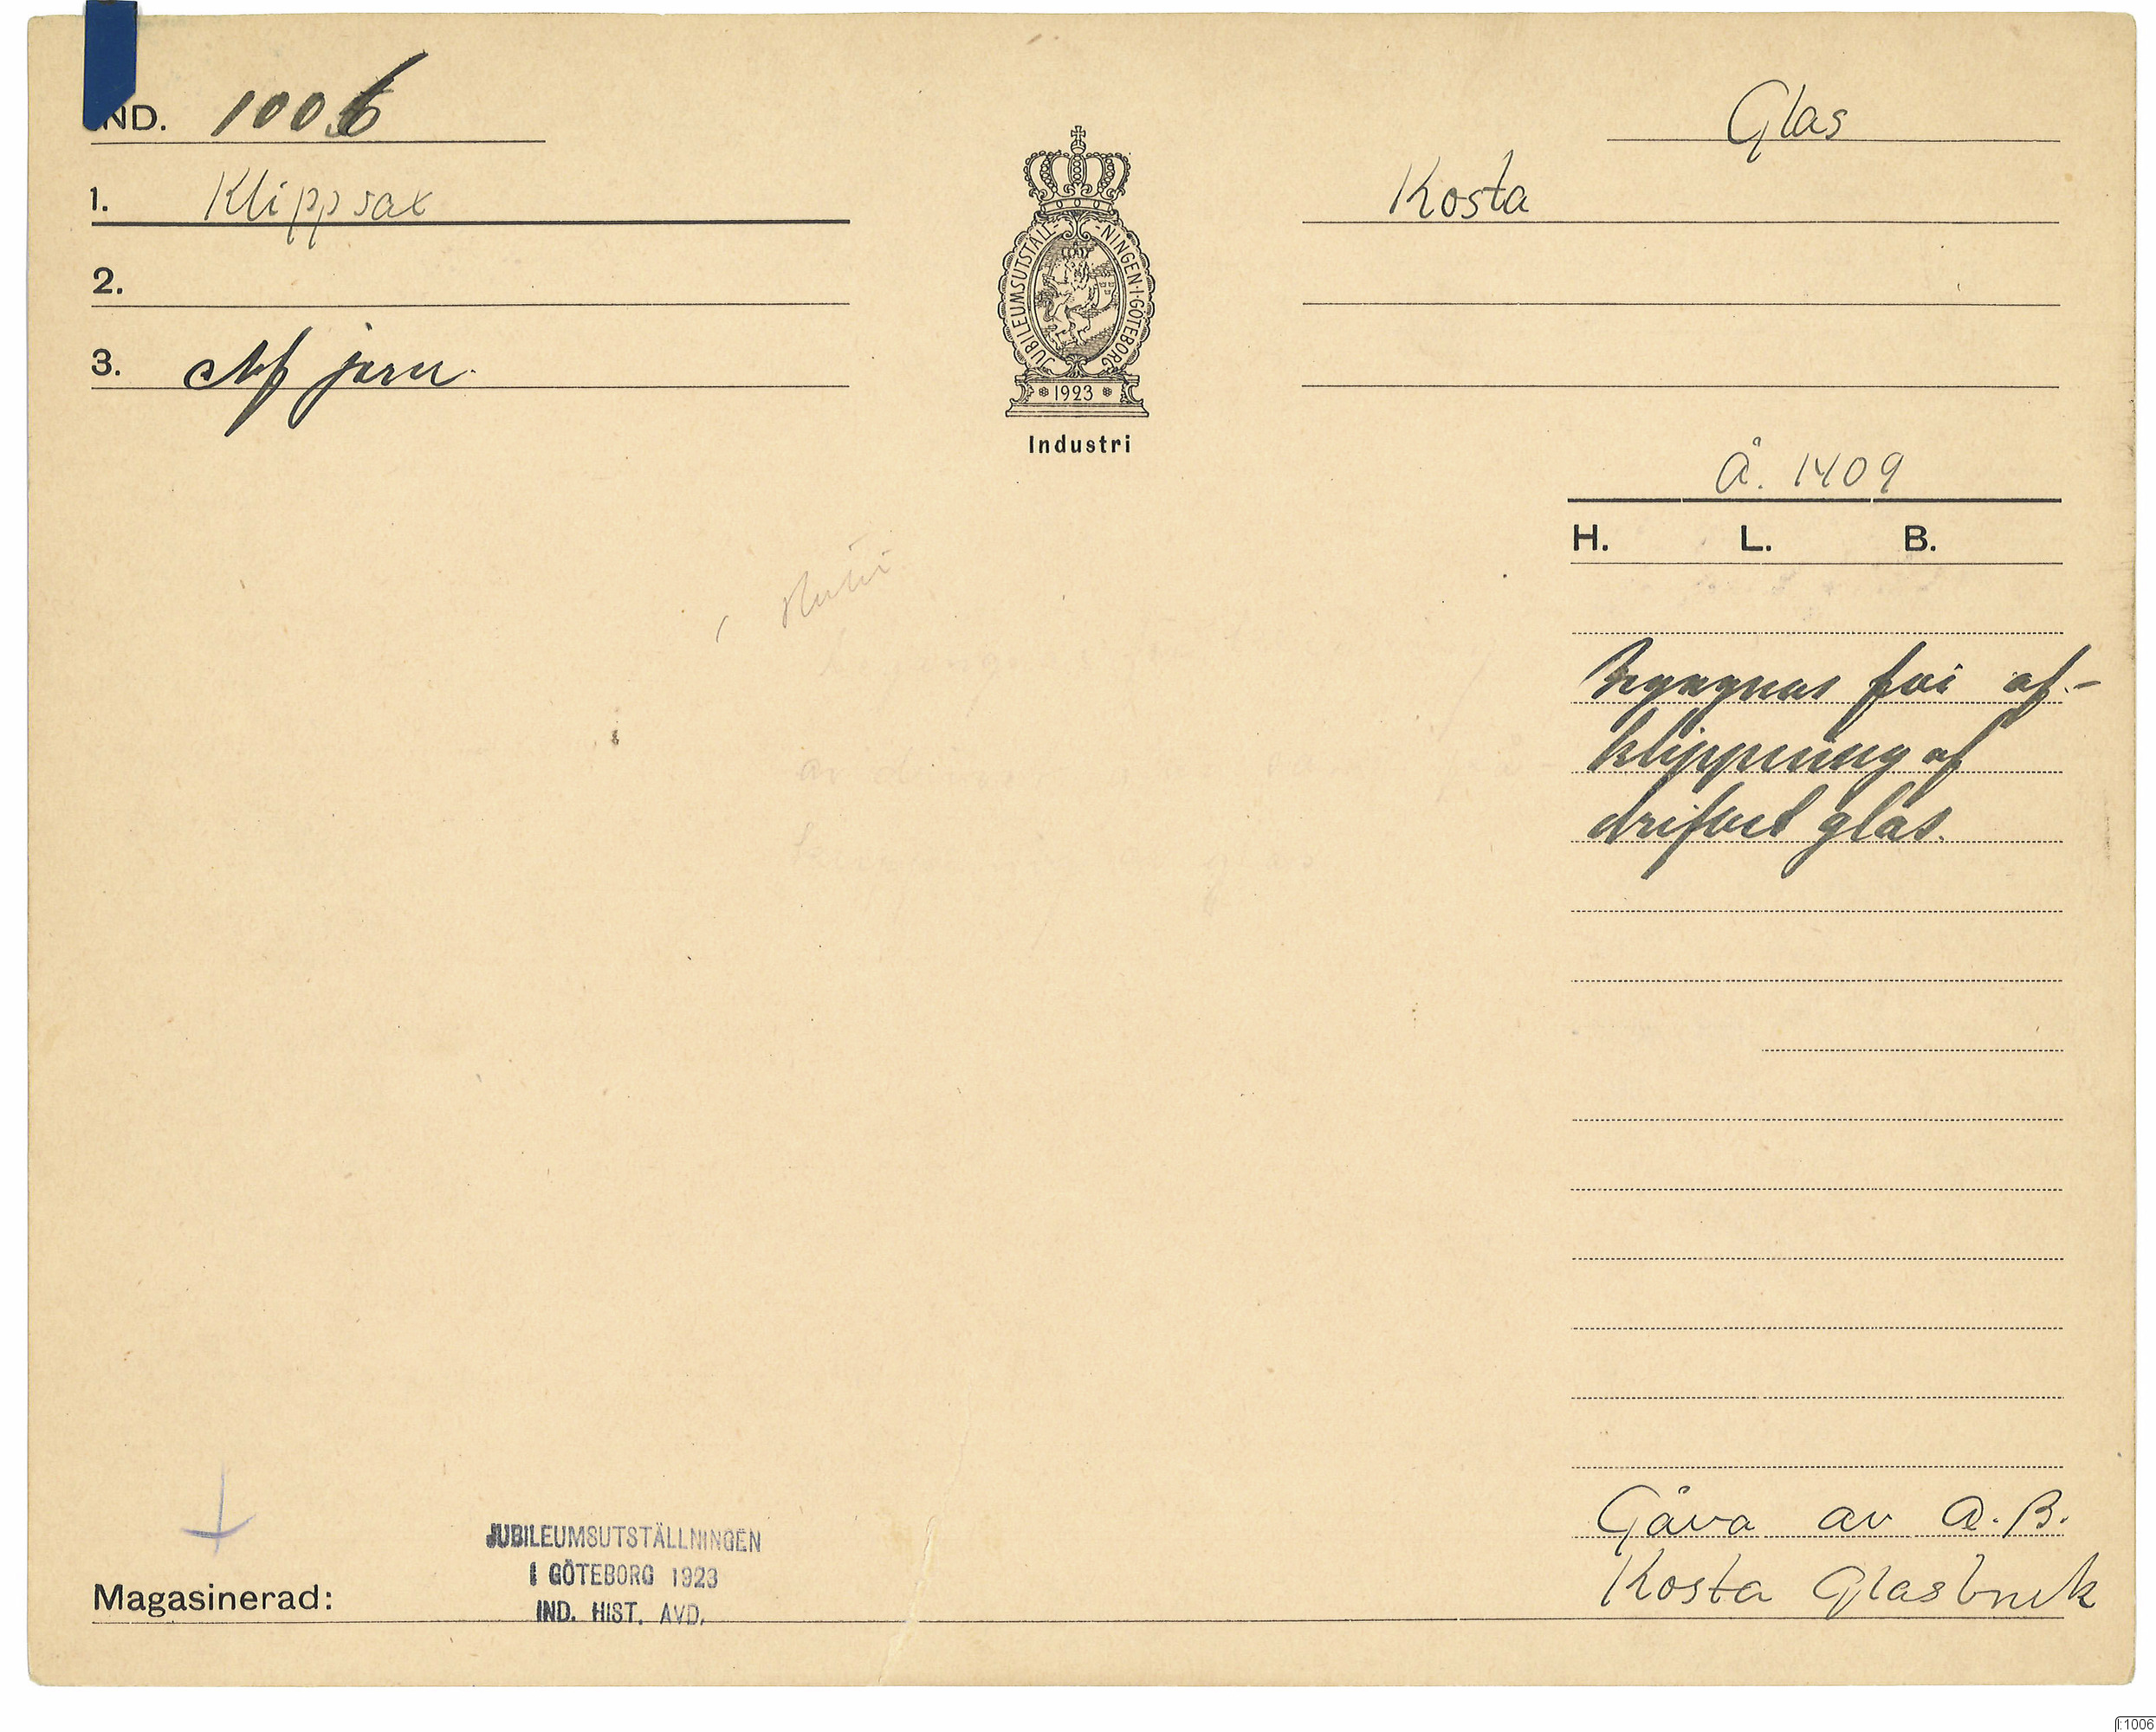 IND. 1006
Glas
1. Klippsax
Kosta
2.
3. Af jern.
JUBILEUMSUTSTÄLL-NINGEN·I·GÖTEBORG
1923
Industri
Å. 1409
H. L. B.
Begagnas för af-
klippning af
drifvet glas.
Gåva av A.B.
Kosta Glasbruk
JUBILEUMSUTSTÄLLNINGEN
I GÖTEBORG 1923
IND. HIST. AVD.
Magasinerad:
I:1006